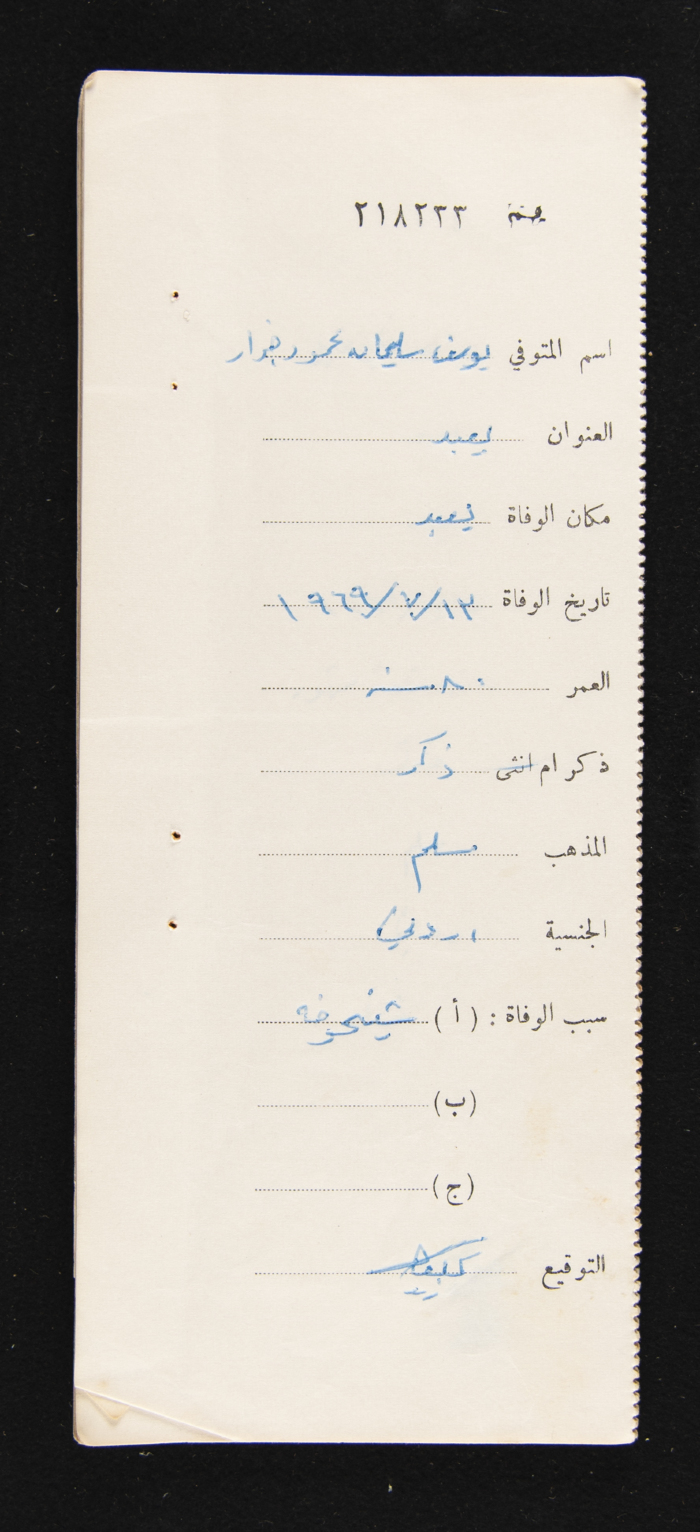 نمرة ٢١٨٢٣٣
اسم المتوفي يوسف سليمان محمود
العنوان يعبد
مكان الوفاة يعبد
تاريخ الوفاة ١٣/٧/١٩٦٩
العمر ٨٠ سنة
ذكر ام انثى ذكر
المذهب مسلم
الجنسية اردني
سبب الوفاة : (أ) شيخوخة
(ب)
(ج)
التوقيع